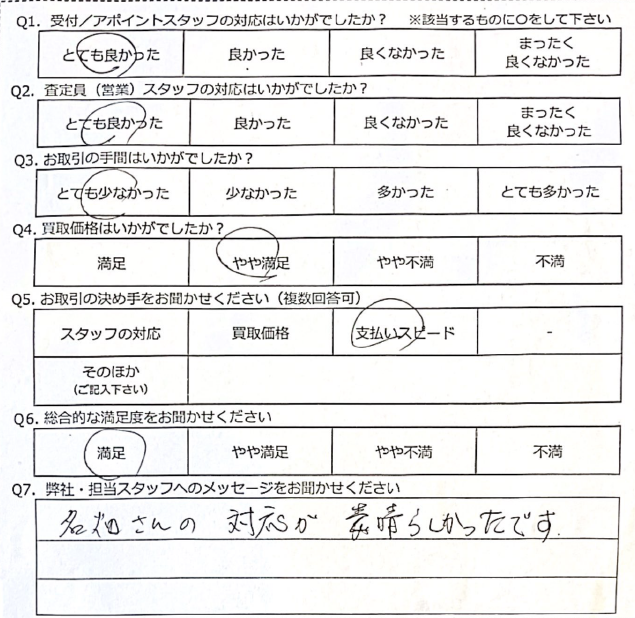 Q1. 受付／アポイントスタッフの対応はいかがでしたか？ ※該当するものに○をして下さい
とても良かった 良かった 良くなかった まったく
良くなかった
Q2. 査定員（営業）スタッフの対応はいかがでしたか？
とても良かった 良かった 良くなかった まったく
良くなかった
Q3. お取引の手間はいかがでしたか？
とても少なかった 少なかった 多かった とても多かった
Q4. 買取価格はいかがでしたか？
満足 やや満足 やや不満 不満
Q5. お取引の決め手をお聞かせください（複数回答可）
スタッフの対応 買取価格 支払いスピード -
そのほか
（ご記入下さい）
Q6. 総合的な満足度をお聞かせください
満足 やや満足 やや不満 不満
Q7. 弊社・担当スタッフへのメッセージをお聞かせください
名畑さんの 対応が 素晴らしかったです.